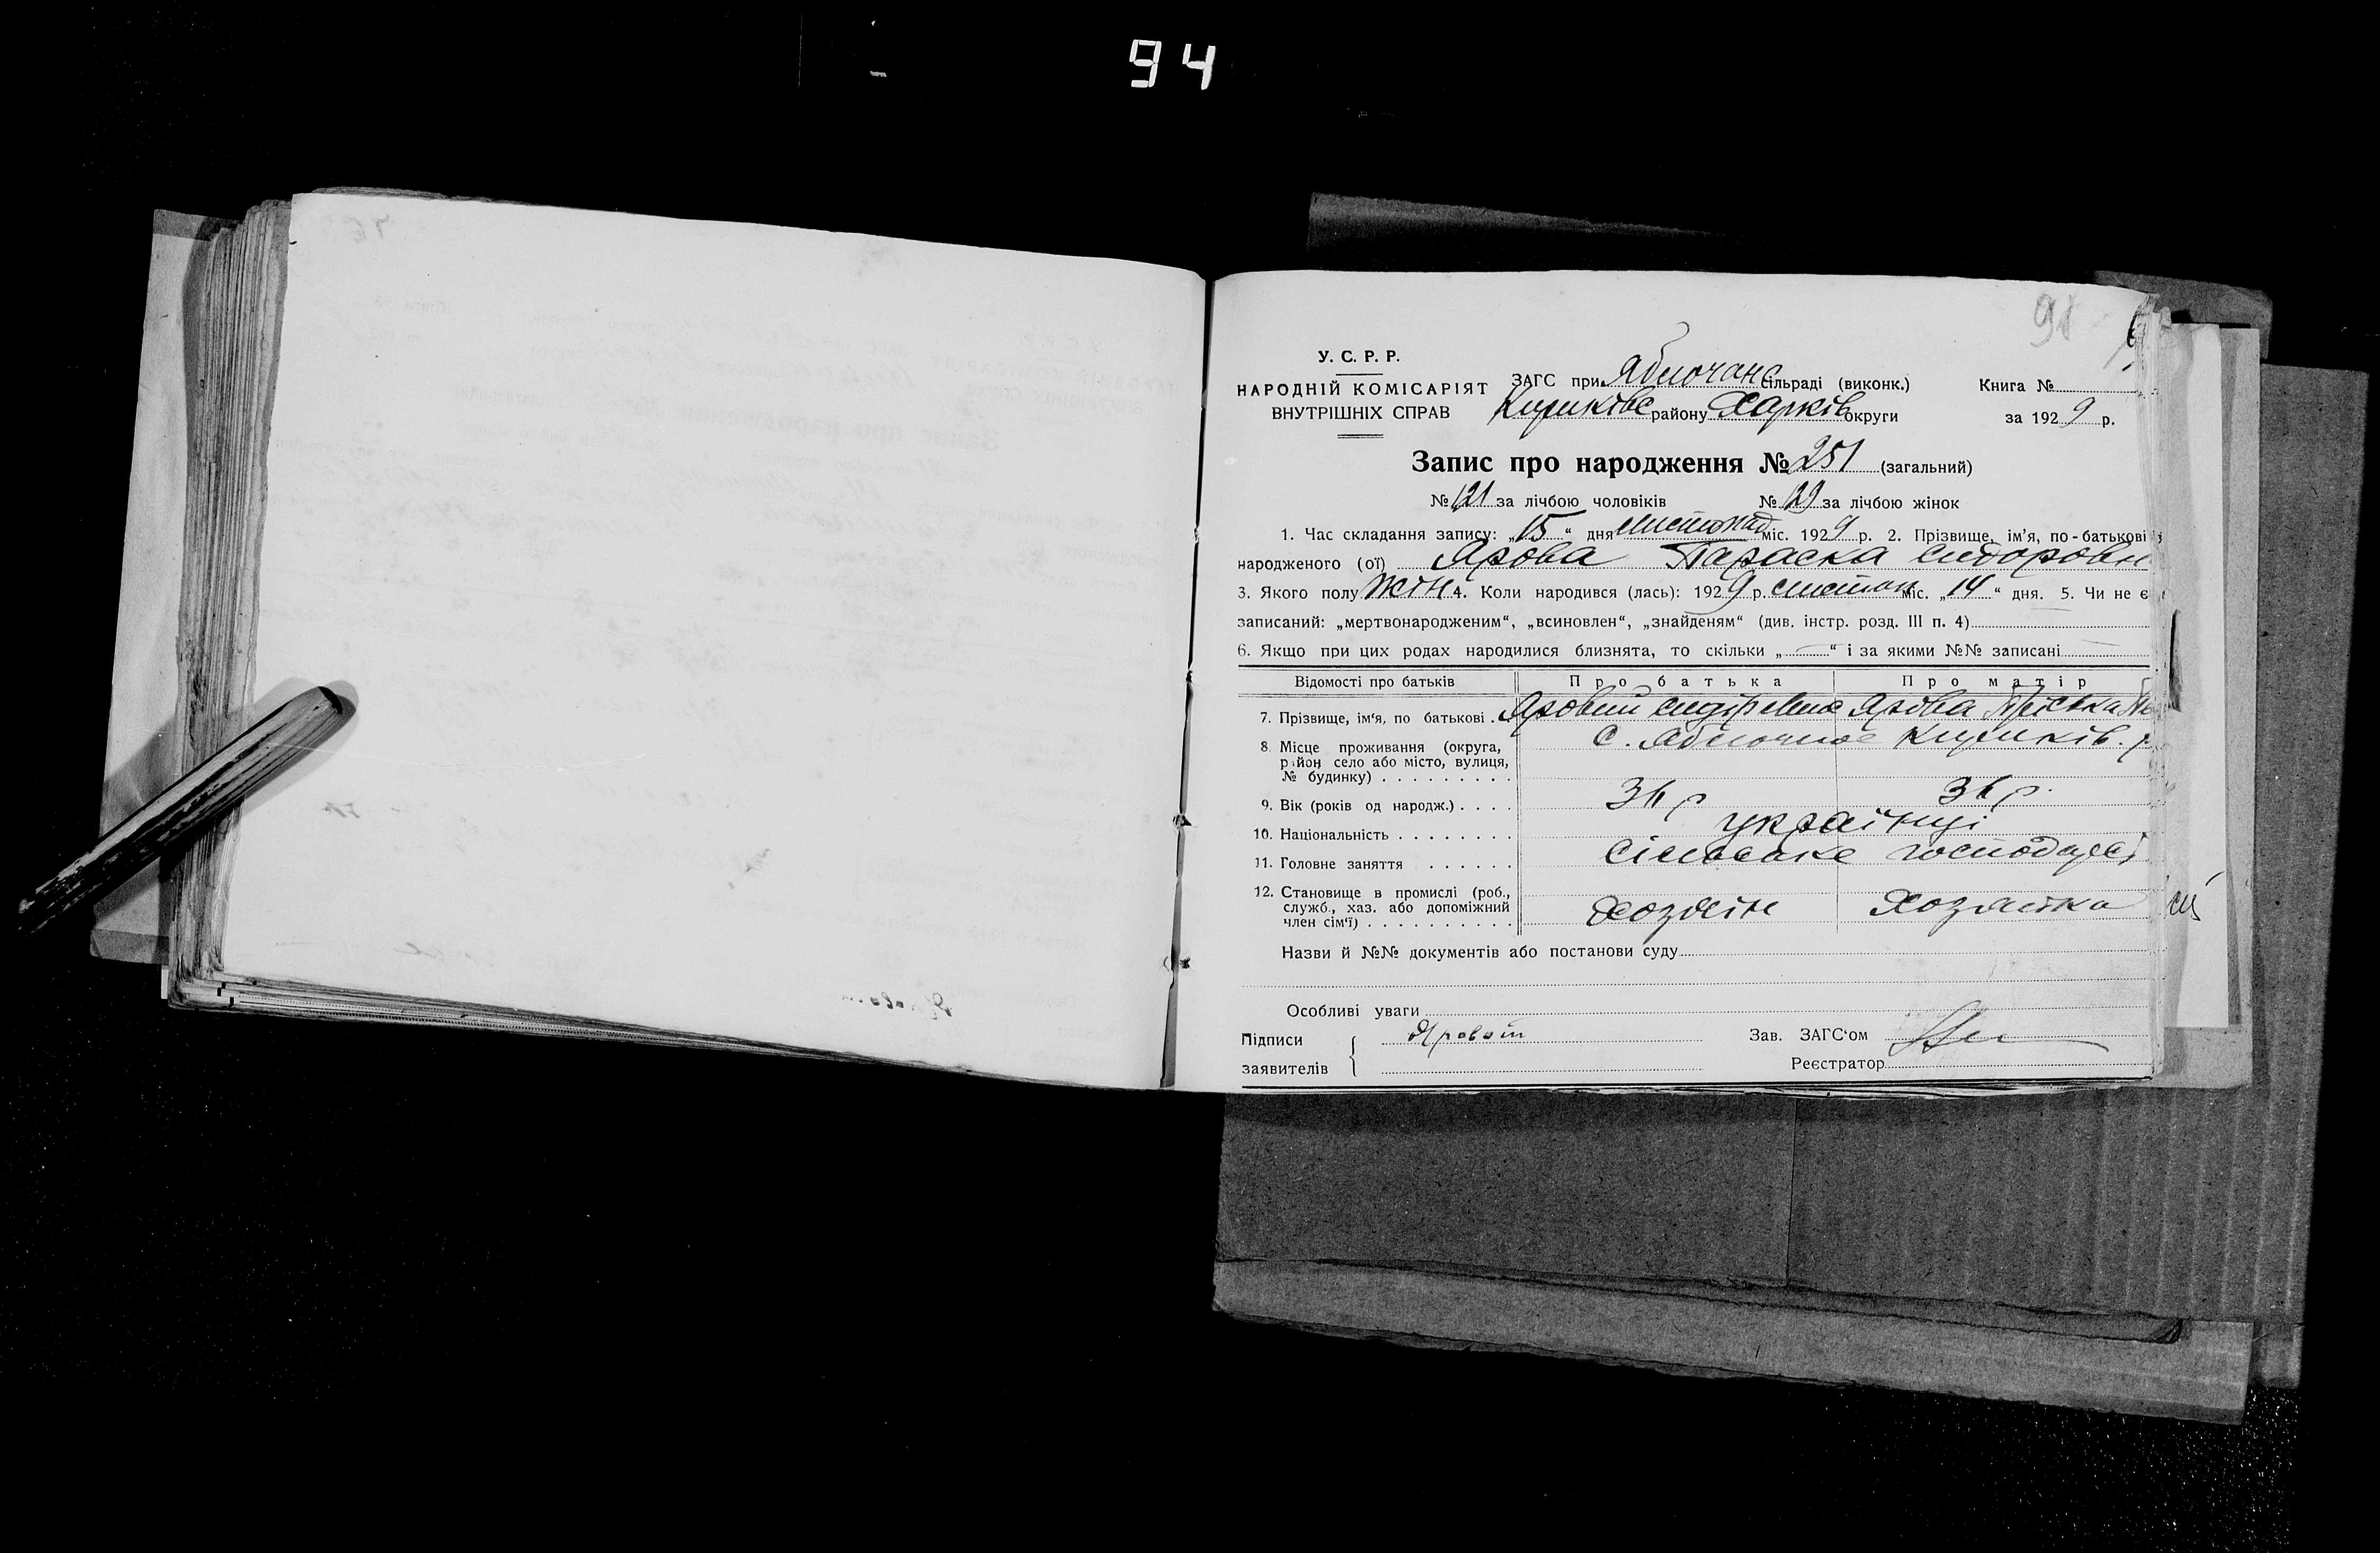 94
91
У. С. Р. Р.
НАРОДНІЙ КОМІСАРІЯТ
ВНУТРІШНІХ СПРАВ
ЗАГС при Яблочанс сільраді (виконк.)
Кириківс району Харків округи
Книга №
за 1929 р.
Запис про народження № 251 (загальний)
№ 121 за лічбою чоловіків № 129 за лічбою жінок
1. Час складання запису: „15“ дня листопад міс. 1929 р. 2. Прізвище, ім'я, по-батькові
народженого (ої) Ярова Параска Сидоровн
3. Якого полу жін 4. Коли народився (лась): 1929 р. листоп міс. „14“ дня. 5. Чи не є
записаний: „мертвонародженим“, „всиновлен“, „знайденям“ (див. інстр. розд. III п. 4)
6. Якщо при цих родах народилися близнята, то скільки „—“ і за якими №№ записані
Відомості про батьків Про батька Про матір
7. Прізвище, ім'я, по батькові Яровий Сидір Ярова Пріська
8. Місце проживання (округа, район село або місто, вулиця, № будинку) с. Яблочное Кириків. р
9. Вік (років од народж.) 36 р 36 р.
10. Національність українці
11. Головне заняття сільське господарс
12. Становище в промислі (роб., служб., хаз. або допоміжний член сім'ї) хозяїн хозяйка
Назви й №№ документів або постанови суду
Особливі уваги
Підписи
заявителів
Яровой
Зав. ЗАГС'ом
Реєстратор